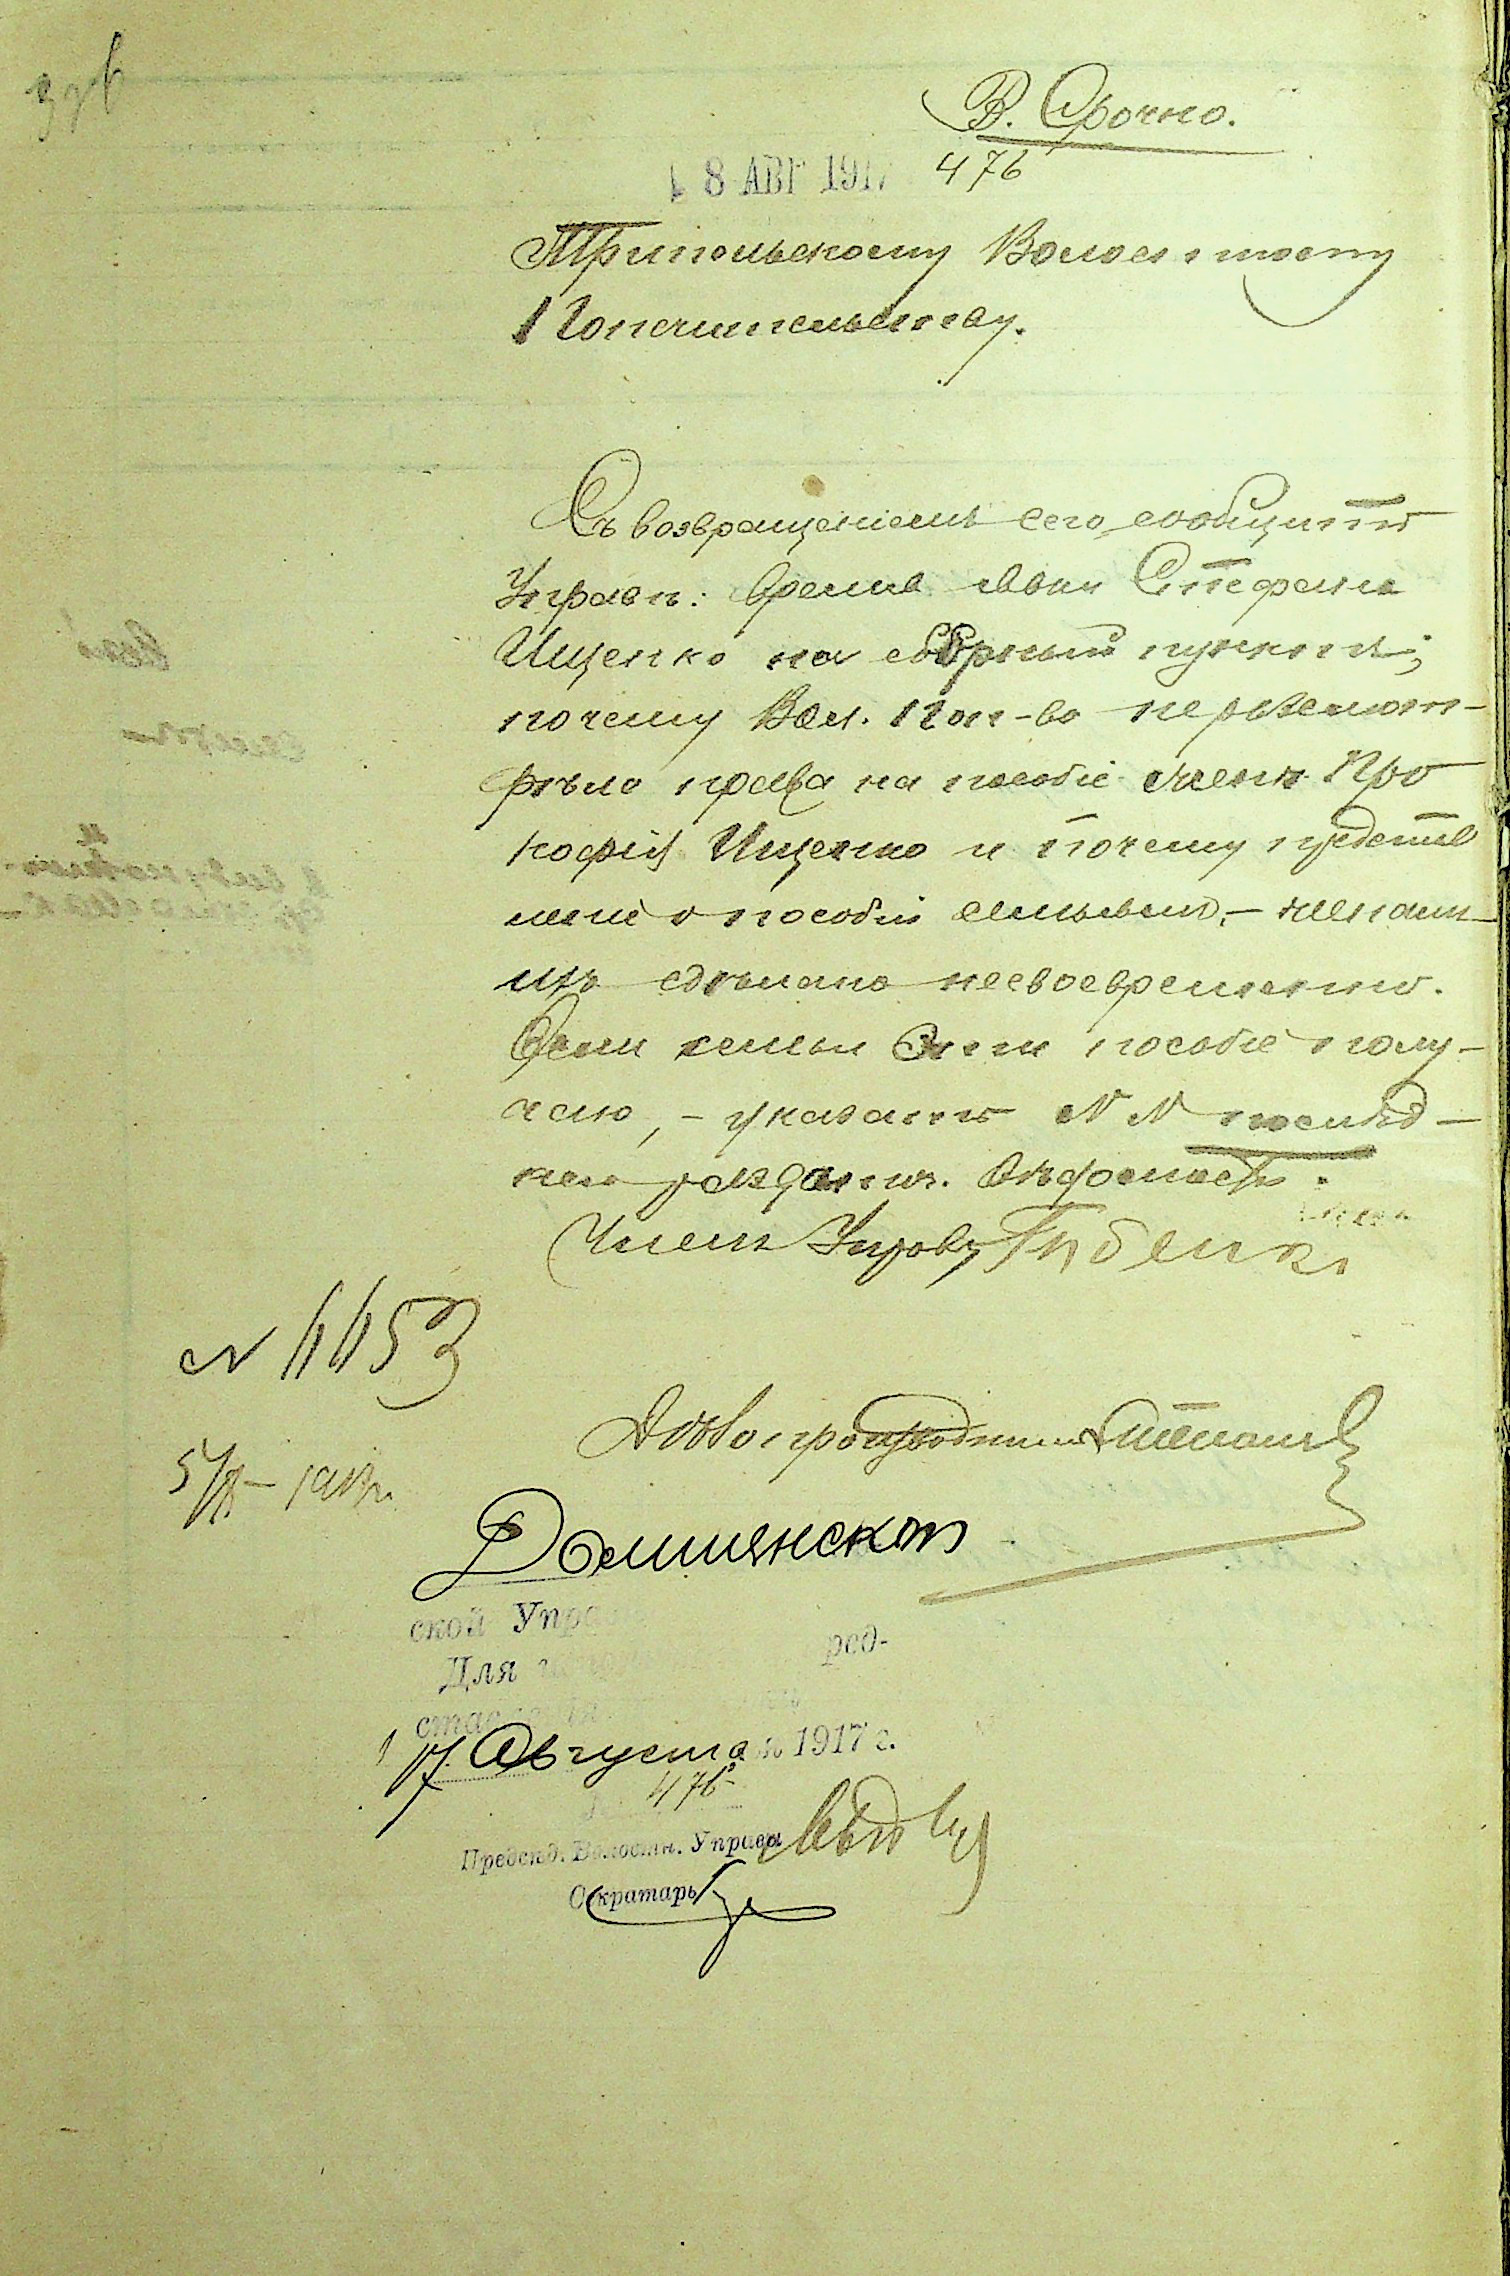 В. Срочно.
8 АВГ 191
476
Трипольскому Волостному
Попечительству.
Съ возвращеніемъ сего, сообщить
Управѣ: время явки Стефана
Ищенко на сборный пунктъ;
почему Вол. Поп-во не разсмот-
рѣло права на пособіе жены Про
кофія Ищенко и почему представ
леніе о пособіи семьямъ,
сдѣлано несвоевременно.
Если семьи эти пособіе полу-
чаю, - указать N N послѣд-
ней раздаточ. вѣдомости.
Членъ Управы
N 6653
5/ - 1917 г.
Дѣлопроизводитель
Долинской
ской Управ
Для ред-
ста
17 Августа 1917 г.
476
Предсѣд. Волостн. Управы
Секратарь